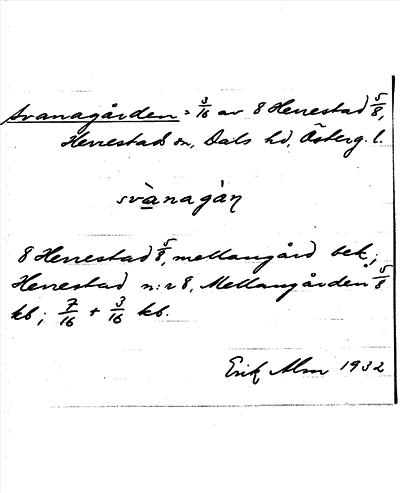 Svanagården = 3/16 av 8 Herrestad 5/8,
Herrestads sn, Dals hd, Österg. l.
svànagàɳ
8 Herrestad 5/8, mellangård bek;
Herrestad n:r 8, Mellangården 5/8
kb; 7/16 + 3/16 kb.
Erik Alm 1932